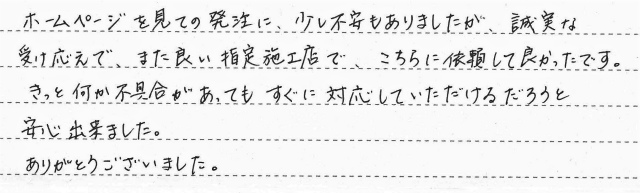 ホームページを見ての発注に、少し不安もありましたが、誠実な
受け応えで、また良い指定施工店で、こちらに依頼して良かったです。
きっと何か不具合があってもすぐに対応していただけるだろうと
安心出来ました。
ありがとうございました。